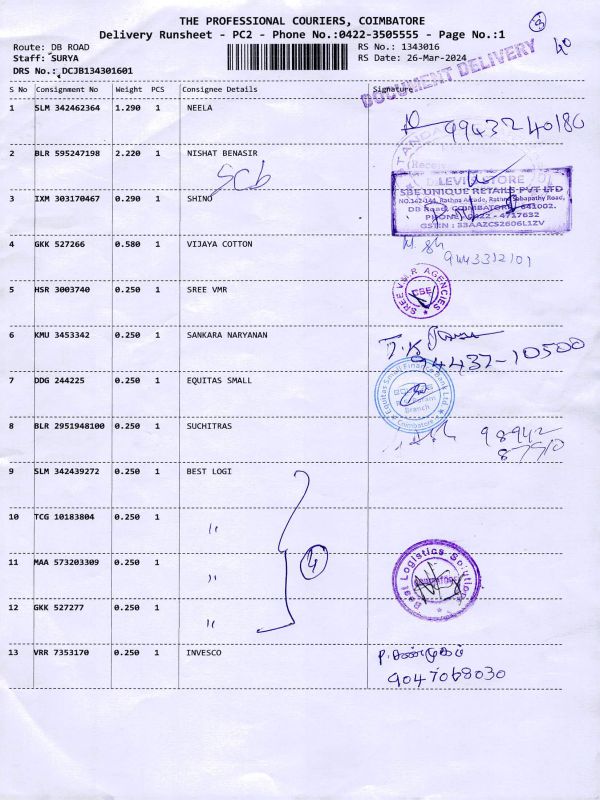 THE PROFESSIONAL COURIERS, COIMBATORE
Delivery Runsheet - PC2 - Phone No.:0422-3505555 - Page No.:1
Route: DB ROAD
Staff: SURYA
DRS No.: DCJB134301601
RS No.: 1343016
RS Date: 26-Mar-2024
DOCUMENT DELIVERY
S No Consignment No Weight PCS Consignee Details Signature
1 SLM 342462364 1.290 1 NEELA
9943240180
2 BLR 595247198 2.220 1 NISHAT BENASIR
SCB
3 IXM 303170467 0.290 1 SHINO
LEVI STORE
SBE UNIQUE RETAILS PVT LTD
NO.142-144, Rathna Arcade, Rathna Sabapathy Road,
DB Road, COIMBATORE - 641002.
PHONE: 0422 - 4717632
GSTEN : 33AAZCS2606L1ZV
4 GKK 527266 0.580 1 VIJAYA COTTON
5 HSR 3003740 0.250 1 SREE VMR
SREE V.M.R AGENCIES
CBE
6 KMU 3453342 0.250 1 SANKARA NARYANAN
94437-10500
7 DDG 244225 0.250 1 EQUITAS SMALL
Equitas Small Finance Bank Ltd.
Branch
Coimbatore
8 BLR 2951948100 0.250 1 SUCHITRAS
98942
9 SLM 342439272 0.250 1 BEST LOGI
10 TCG 10183804 0.250 1 "
11 MAA 573203309 0.250 1 "
4
Best Logistics Solutions
12 GKK 527277 0.250 1 "
13 VRR 7353170 0.250 1 INVESCO
P. சண்முகம்
9047068030